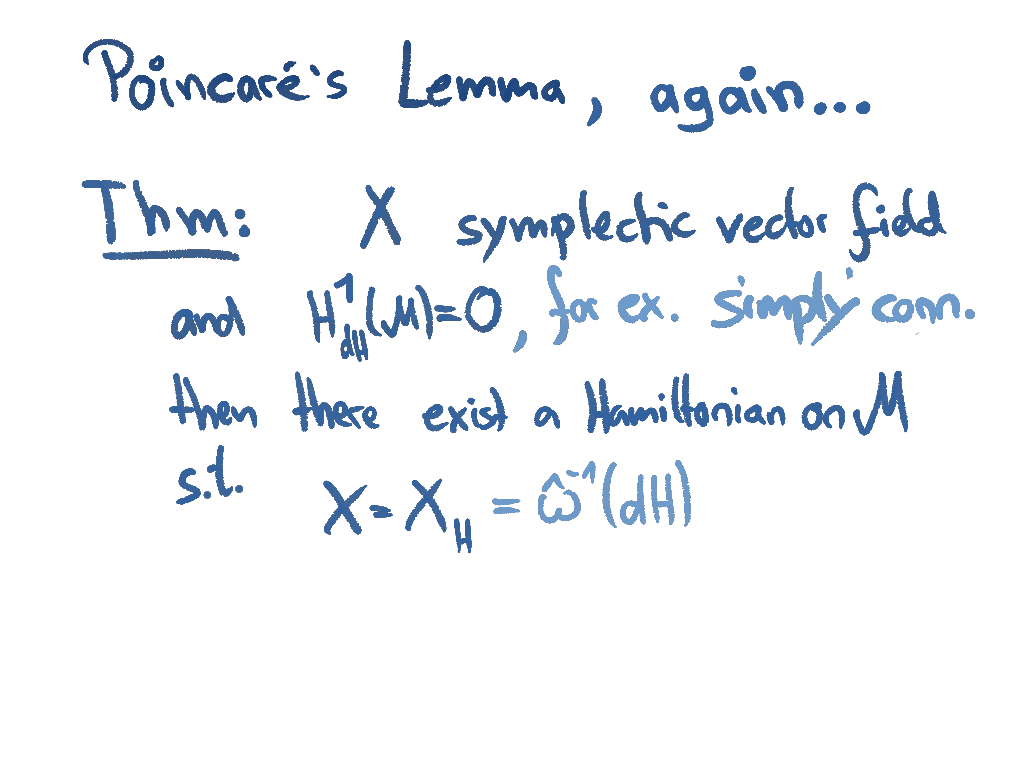 Poincaré's Lemma, again...
Thm: X symplectic vector field
and H¹_dH(M)=0, for ex. simply conn.
then there exist a Hamiltonian on M
s.t.
X = X_H = ω̂⁻¹(dH)